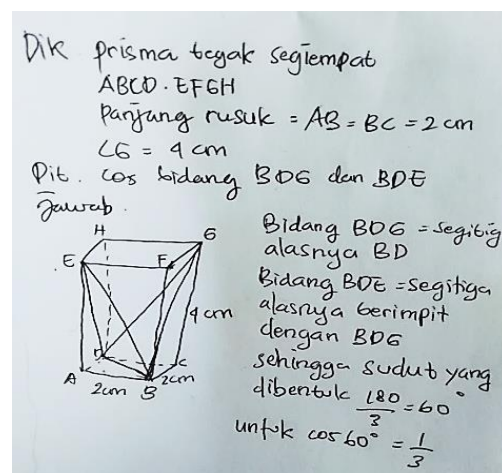 Dik prisma tegak segiempat
ABCD.EFGH
Panjang rusuk = AB = BC = 2 cm
CG = 4 cm
Dit. cos bidang BDG dan BDE
Jawab.
H
G
E
F
4 cm
D
C
A
2cm
B
2cm
Bidang BDG = segitig
alasnya BD
Bidang BDE = segitiga
alasnya berimpit
dengan BDG
sehingga sudut yang
dibentuk 180/3 = 60°
untuk cos 60° = 1/3